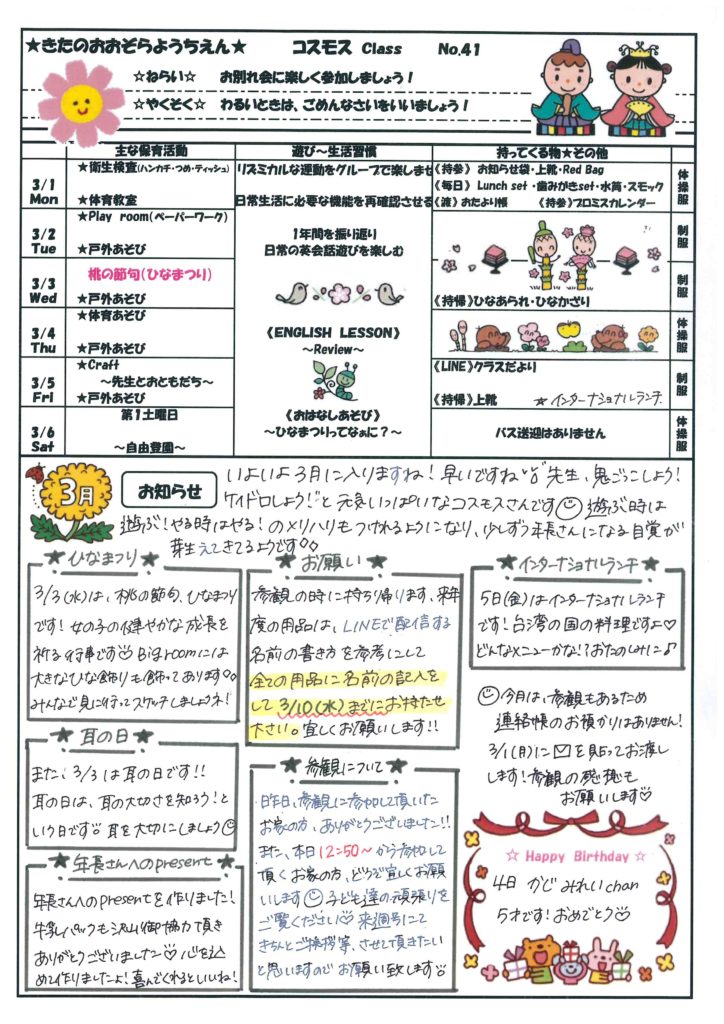 ★きたのおおぞらようちえん★ コスモス Class No.41
☆ねらい☆ お別れ会に楽しく参加しましょう！
☆やくそく☆ わるいときは、ごめんなさいをいいましょう！
主な保育活動 遊び～生活習慣 持ってくる物★その他
3/1 Mon
★衛生検査(ハンカチ・つめ・ティッシュ)
★体育教室
リズミカルな運動をグループで楽しませ
日常生活に必要な機能を再確認させる
《持参》 お知らせ袋・上靴・Red Bag
《毎日》 Lunch set ・歯みがきset・水筒・スモック
《渡》 おたより帳 《持参》プロミスカレンダー
体操服
3/2 Tue
★Play room(ペーパーワーク)
★戸外あそび
1年間を振り返り
日常の英会話遊びを楽しむ
制服
3/3 Wed
桃の節句(ひなまつり)
★戸外あそび
《持帰》ひなあられ・ひなかざり
制服
3/4 Thu
★体育あそび
★戸外あそび
《ENGLISH LESSON》
～Review～
体操服
3/5 Fri
★Craft
～先生とおともだち～
★戸外あそび
《おはなしあそび》
～ひなまつりってなぁに？～
《LINE》クラスだより
《持帰》上靴 ☆インターナショナルランチ
制服
3/6 Sat
第1土曜日
～自由登園～
バス送迎はありません
体操服
3月
お知らせ
いよいよ3月に入りますね！早いですね。“先生、鬼ごっこしよう！
ケイドロしよう！”と元気いっぱいなコスモスさんです 遊ぶ時は
遊ぶ！やる時はやる！のメリハリもつけれるようになり、少しずつ年長さんになる自覚が
芽生えてきてるようです
★ひなまつり★
3/3(水)は、桃の節句、ひなまつり
です！女の子の健やかな成長を
祈る行事です♡Big roomには
大きなひな飾りも飾ってあります。
みんなで見に行ってスケッチしましょうネ！
★耳の日★
また、3/3は耳の日です！！
耳の日は、耳の大切さを知ろう！と
いう日です。耳を大切にしましょう
★年長さんへのpresent★
年長さんへのpresentを作りました！
牛乳パックも沢山御協力頂き
ありがとうございました♡心を込
めて作りましたよ！喜んでくれるといいね！
★お願い★
参観の時に持ち帰ります、来年
度の用品は、LINEで配信する
名前の書き方を参考にして
全ての用品に名前の記入を
して3/10(水)までにお持たせ
下さい。宜しくお願いします！！
★参観について★
昨日、参観に参加して頂いた
お家の方、ありがとうございました!!
また、本日12:50～から参加して
頂くお家の方、どうぞ宜しくお願
いします 子ども達の頑張りを
ご覧ください♡来週号にて
きちんとご挨拶等、させて頂きたい
と思いますのでお願い致します
★インターナショナルランチ★
5日(金)はインターナショナルランチ
です！台湾の国の料理ですよ♡
どんなメニューかな！？おたのしみに♪
今月は、参観もあるため
連絡帳のお預かりはありません！
3/1(月)に✉を貼ってお渡し
します！参観の感想も
お願いします♡
☆ Happy Birthday ☆
4日 かじ みれい chan
5才です！おめでとう♡